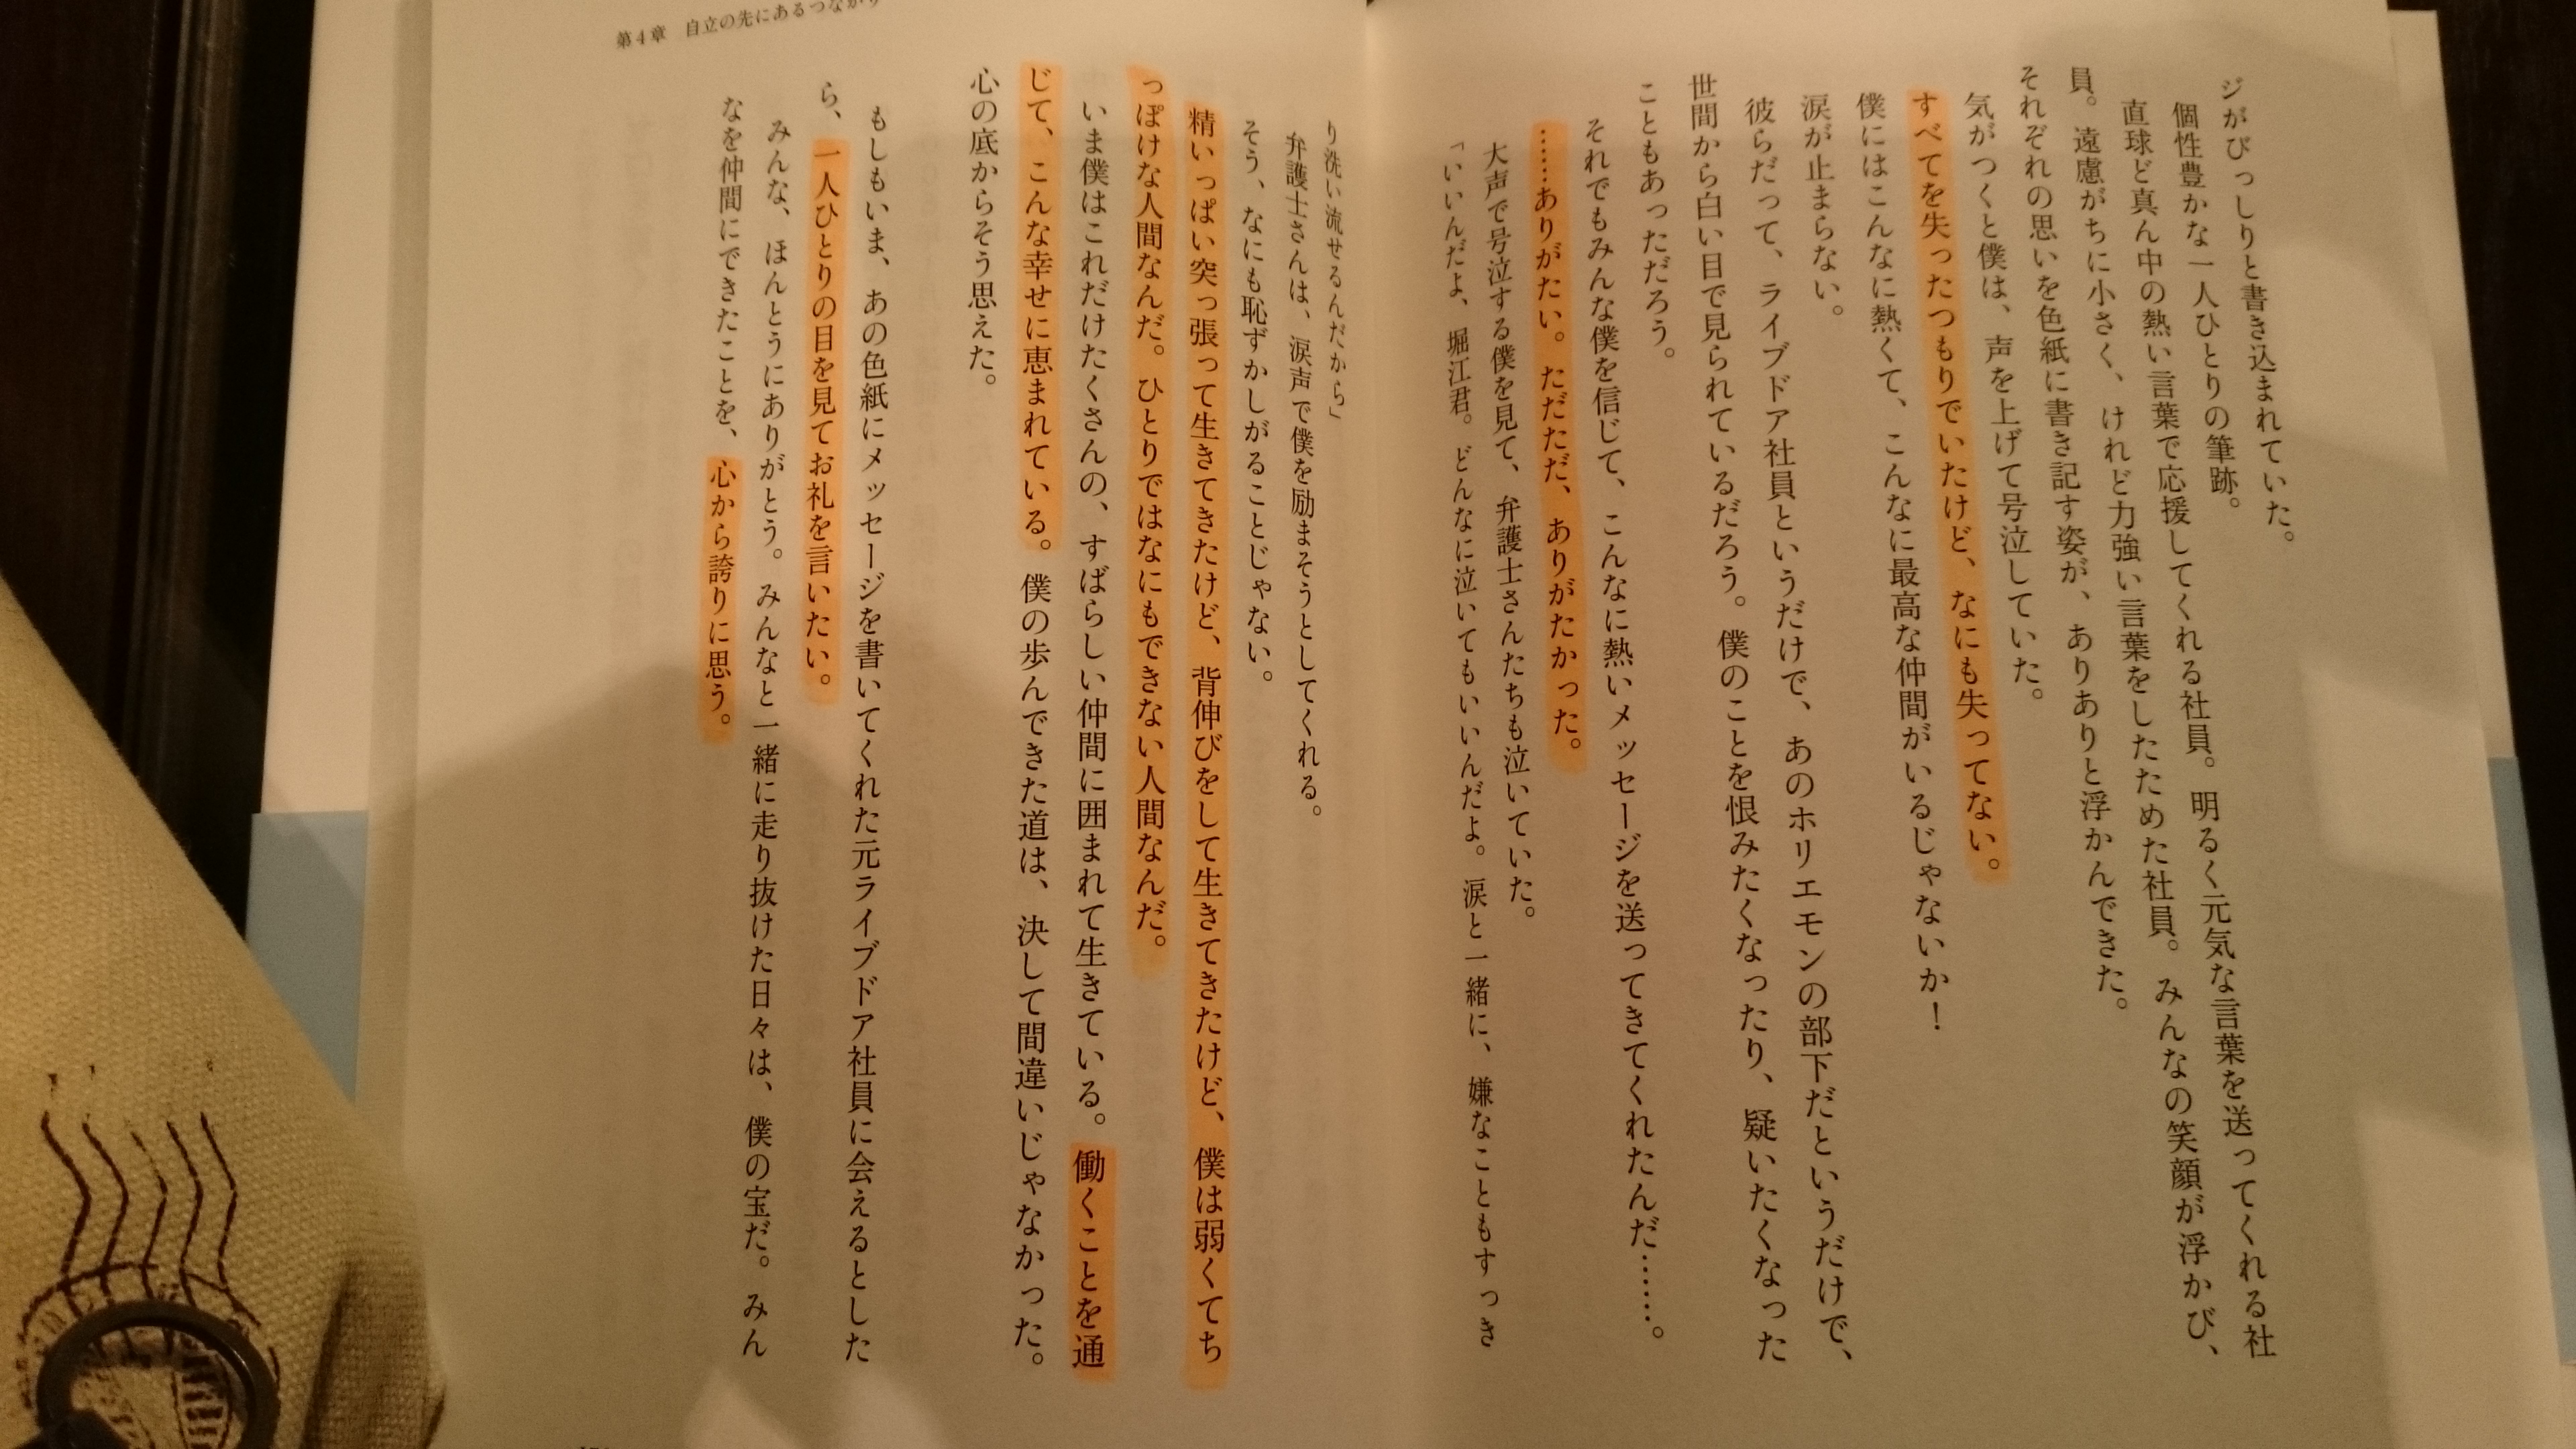 ジがびっしりと書き込まれていた。
個性豊かな一人ひとりの筆跡。
直球ど真ん中の熱い言葉で応援してくれる社員。明るく元気な言葉を送ってくれる社
員。遠慮がちに小さく、けれど力強い言葉をしたためた社員。みんなの笑顔が浮かび、
それぞれの思いを色紙に書き記す姿が、ありありと浮かんできた。
気がつくと僕は、声を上げて号泣していた。
すべてを失ったつもりでいたけど、なにも失ってない。
僕にはこんなに熱くて、こんなに最高な仲間がいるじゃないか！
涙が止まらない。
彼らだって、ライブドア社員というだけで、あのホリエモンの部下だというだけで、
世間から白い目で見られているだろう。僕のことを恨みたくなったり、疑いたくなった
こともあっただろう。
それでもみんな僕を信じて、こんなに熱いメッセージを送ってきてくれたんだ……。
……ありがたい。ただただ、ありがたかった。
大声で号泣する僕を見て、弁護士さんたちも泣いていた。
「いいんだよ、堀江君。どんなに泣いてもいいんだよ。涙と一緒に、嫌なこともすっき
り洗い流せるんだから」
弁護士さんは、涙声で僕を励まそうとしてくれる。
そう、なにも恥ずかしがることじゃない。
精いっぱい突っ張って生きてきたけど、背伸びをして生きてきたけど、僕は弱くてち
っぽけな人間なんだ。ひとりではなにもできない人間なんだ。
いま僕はこれだけたくさんの、すばらしい仲間に囲まれて生きている。働くことを通
じて、こんな幸せに恵まれている。僕の歩んできた道は、決して間違いじゃなかった。
心の底からそう思えた。
もしもいま、あの色紙にメッセージを書いてくれた元ライブドア社員に会えるとした
ら、一人ひとりの目を見てお礼を言いたい。
みんな、ほんとうにありがとう。みんなと一緒に走り抜けた日々は、僕の宝だ。みん
なを仲間にできたことを、心から誇りに思う。
第4章 自立の先にあるつながり